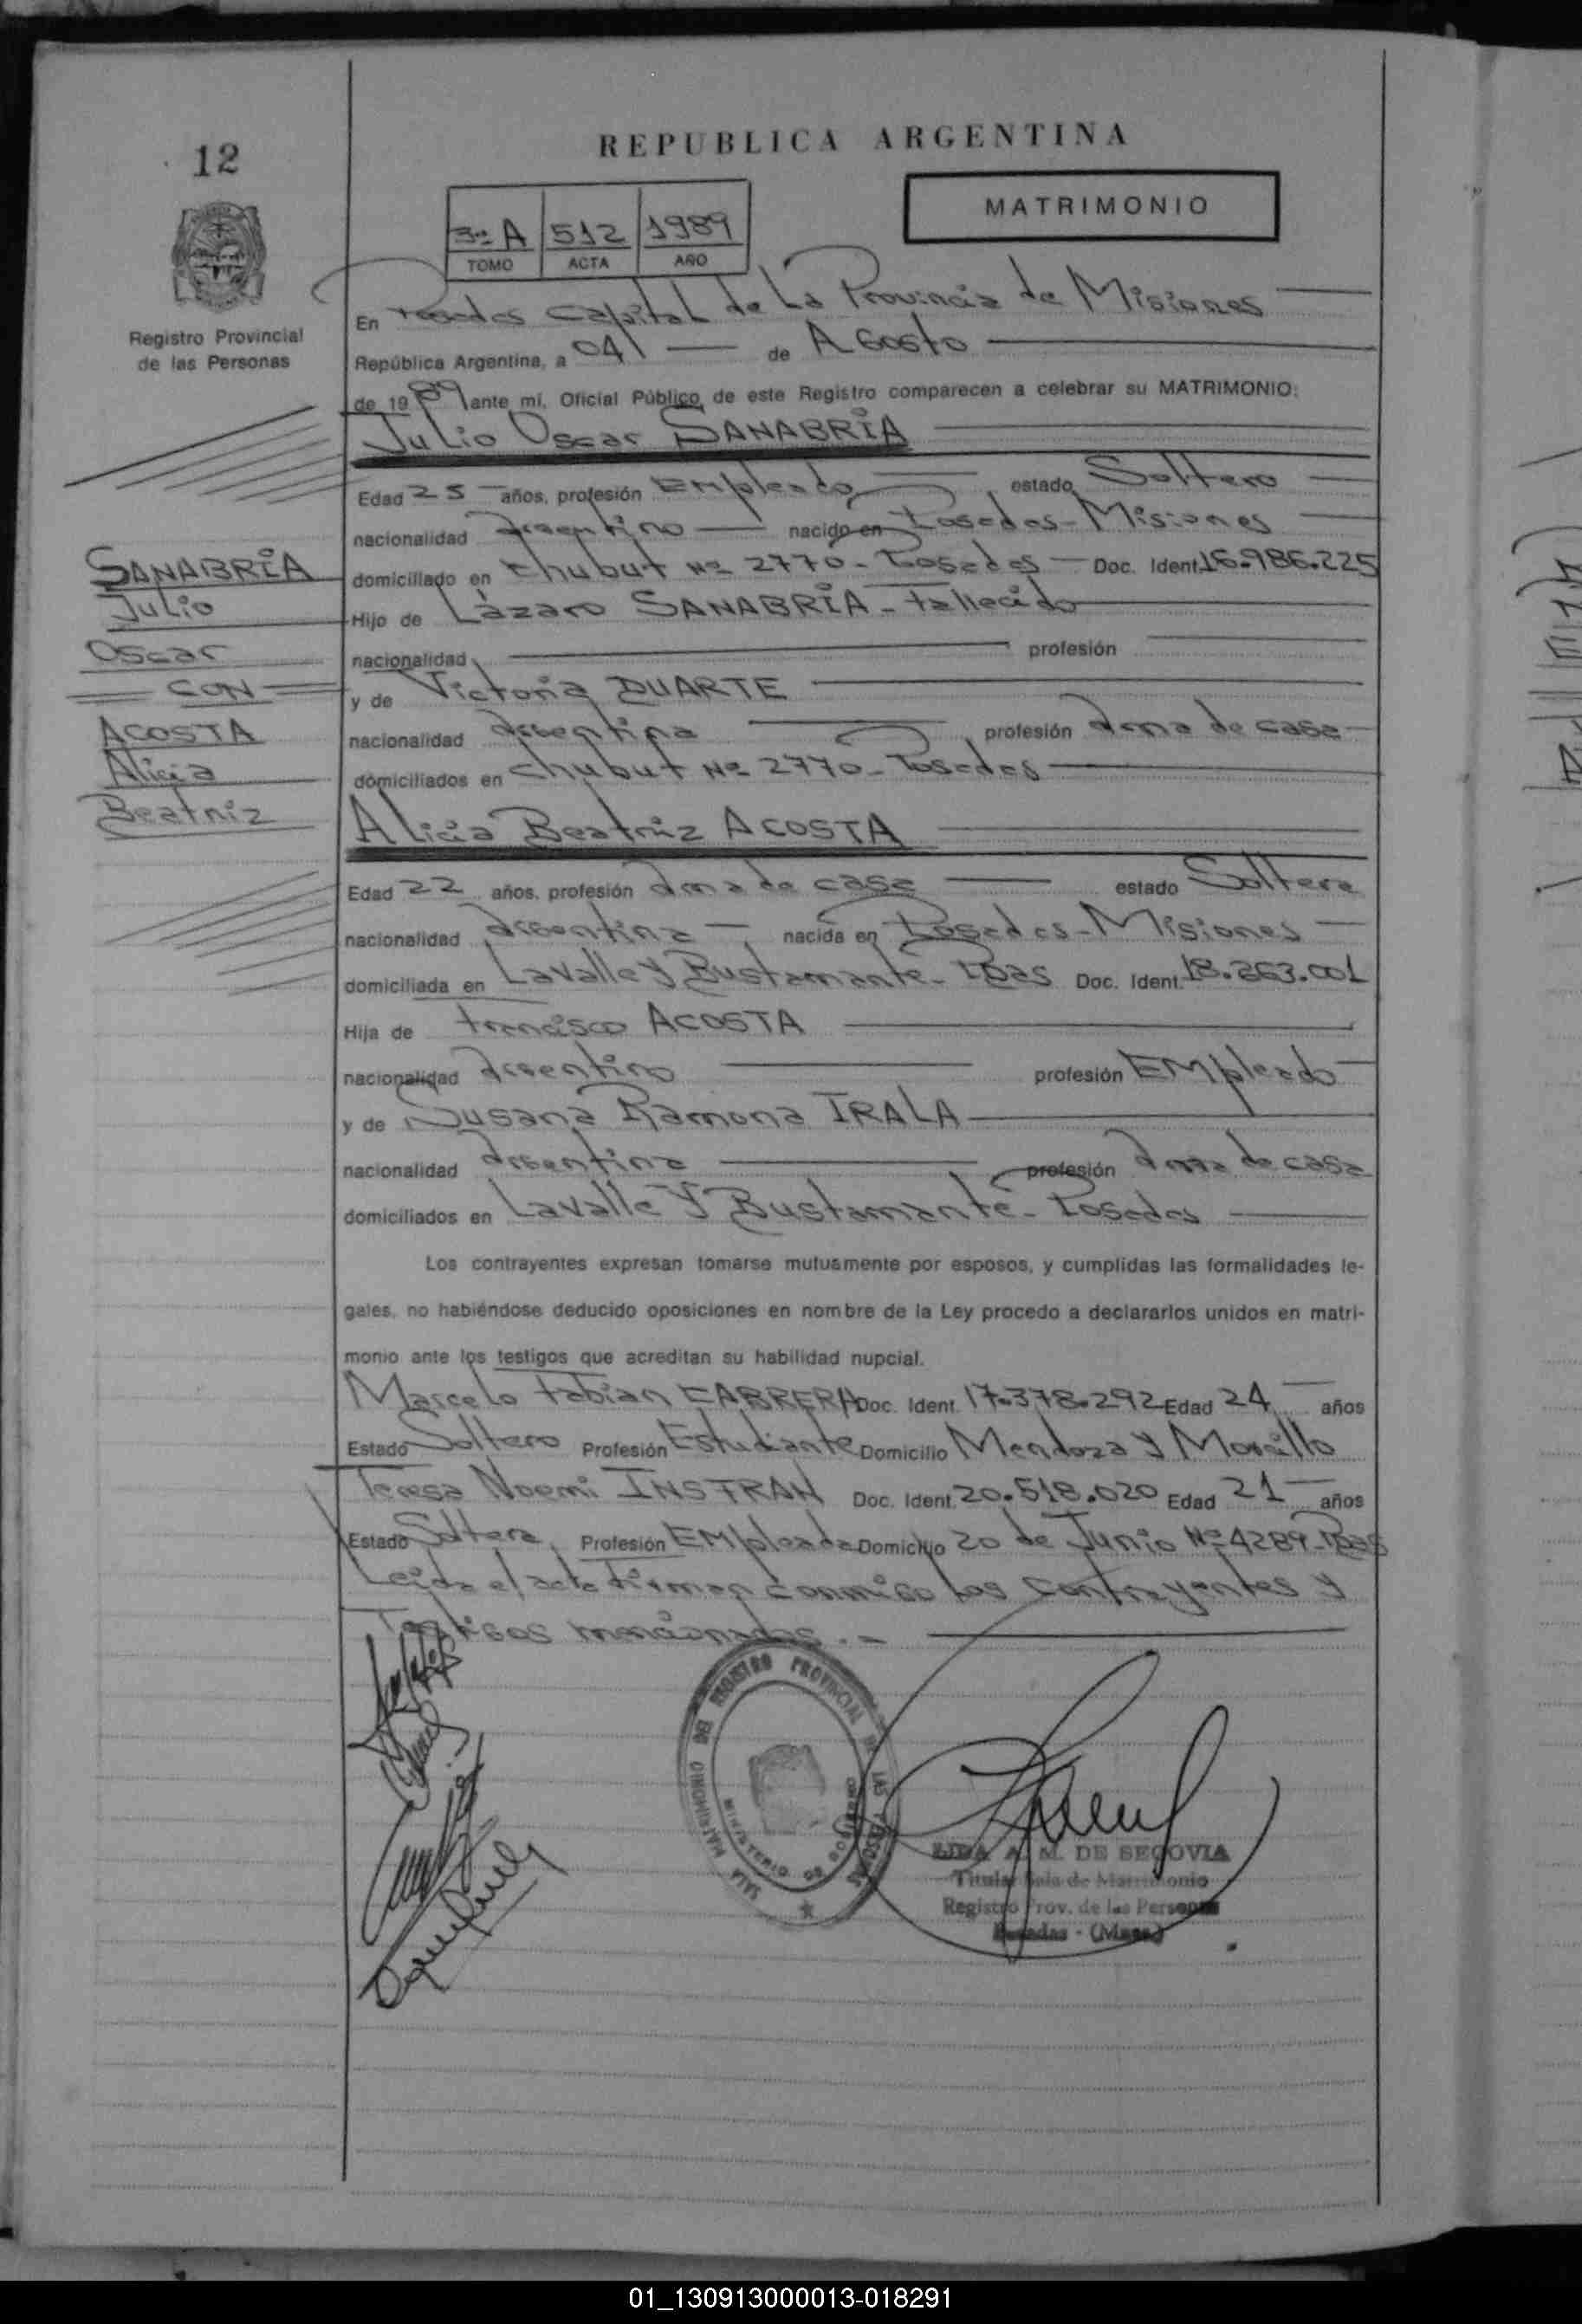 12
REPUBLICA ARGENTINA
MATRIMONIO
3º A 512 1989
TOMO ACTA AÑO
Registro Provincial
de las Personas
En Posadas Capital de La Provincia de Misiones
República Argentina, a 04 de Agosto
de 1989 ante mí, Oficial Público de este Registro comparecen a celebrar su MATRIMONIO:
Julio Oscar SANABRIA
Edad 25 años, profesión Empleado estado Soltero
nacionalidad Argentino nacido en Posadas - Misiones
SANABRIA
Julio
Oscar
CON
ACOSTA
Alicia
Beatriz
domiciliado en Chubut Nº 2770 - Posadas Doc. Ident. 16.986.225
Hijo de Lázaro SANABRIA - Fallecido
nacionalidad profesión
y de Victoria DUARTE
nacionalidad Argentina profesión Ama de casa
domiciliados en Chubut Nº 2770 - Posadas
Alicia Beatriz ACOSTA
Edad 22 años, profesión Ama de casa estado Soltera
nacionalidad Argentina nacida en Posadas - Misiones
domiciliada en Lavalle y Bustamante - Pdas Doc. Ident. 18.263.001
Hija de Francisco ACOSTA
nacionalidad Argentino profesión Empleado
y de Susana Ramona IRALA
nacionalidad Argentina profesión Ama de casa
domiciliados en Lavalle y Bustamante - Posadas
Los contrayentes expresan tomarse mutuamente por esposos, y cumplidas las formalidades le-
gales, no habiéndose deducido oposiciones en nombre de la Ley procedo a declararlos unidos en matri-
monio ante los testigos que acreditan su habilidad nupcial.
Marcelo Fabian CABRERA Doc. Ident. 17.378.292 Edad 24 años
Estado Soltero Profesión Estudiante Domicilio Mendoza y Morcillo
Teresa Noemi INSFRAN Doc. Ident. 20.518.020 Edad 21 años
Estado Soltera Profesión Empleada Domicilio 20 de Junio Nº 4289 - Pdas
Leida el acta firman conmigo los contrayentes y
Testigos mencionados . -
SALA MATRIMONIO DEL REGISTRO PROVINCIAL DE LAS PERSONAS
MINISTERIO DE GOBIERNO
A. M. DE SEGOVIA
Titular Sala de Matrimonio
Registro Prov. de las Personas
Posadas - (Mnes.)
01_130913000013-018291